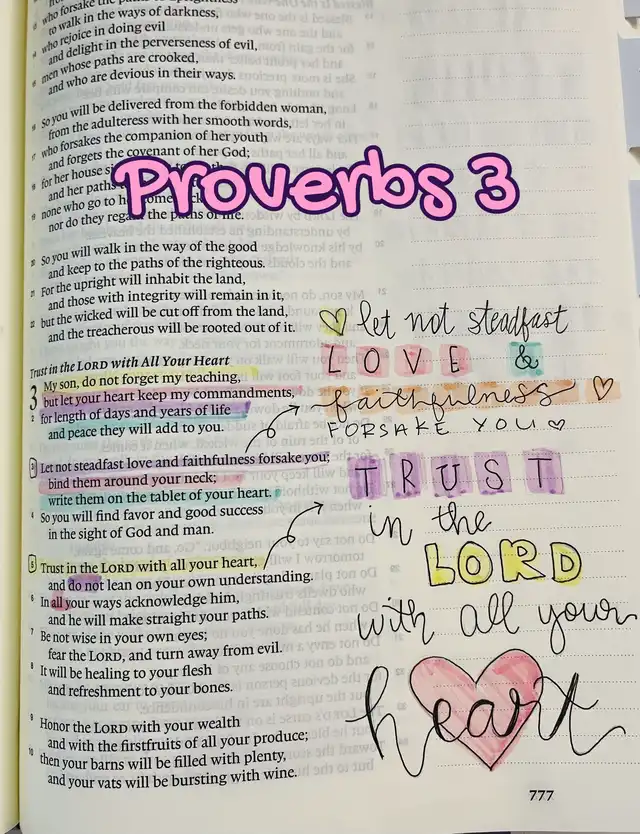 who forsake the paths of uprightness
to walk in the ways of darkness,
14 who rejoice in doing evil
and delight in the perverseness of evil,
15 men whose paths are crooked,
and who are devious in their ways.
16 So you will be delivered from the forbidden woman,
from the adulteress with her smooth words,
17 who forsakes the companion of her youth
and forgets the covenant of her God;
18 for her house
and her paths
19 none who go to
nor do they regain the paths of life.
Proverbs 3
20 So you will walk in the way of the good
and keep to the paths of the righteous.
21 For the upright will inhabit the land,
and those with integrity will remain in it,
22 but the wicked will be cut off from the land,
and the treacherous will be rooted out of it.
Trust in the LORD with All Your Heart
3 My son, do not forget my teaching,
but let your heart keep my commandments,
2 for length of days and years of life
and peace they will add to you.
3 Let not steadfast love and faithfulness forsake you;
bind them around your neck;
write them on the tablet of your heart.
4 So you will find favor and good success
in the sight of God and man.
5 Trust in the LORD with all your heart,
and do not lean on your own understanding.
6 In all your ways acknowledge him,
and he will make straight your paths.
7 Be not wise in your own eyes;
fear the LORD, and turn away from evil.
8 It will be healing to your flesh
and refreshment to your bones.
9 Honor the LORD with your wealth
and with the firstfruits of all your produce;
10 then your barns will be filled with plenty,
and your vats will be bursting with wine.
let not steadfast
LOVE &
faithfulness
FORSAKE YOU
TRUST
in the
LORD
with all your
heart
777